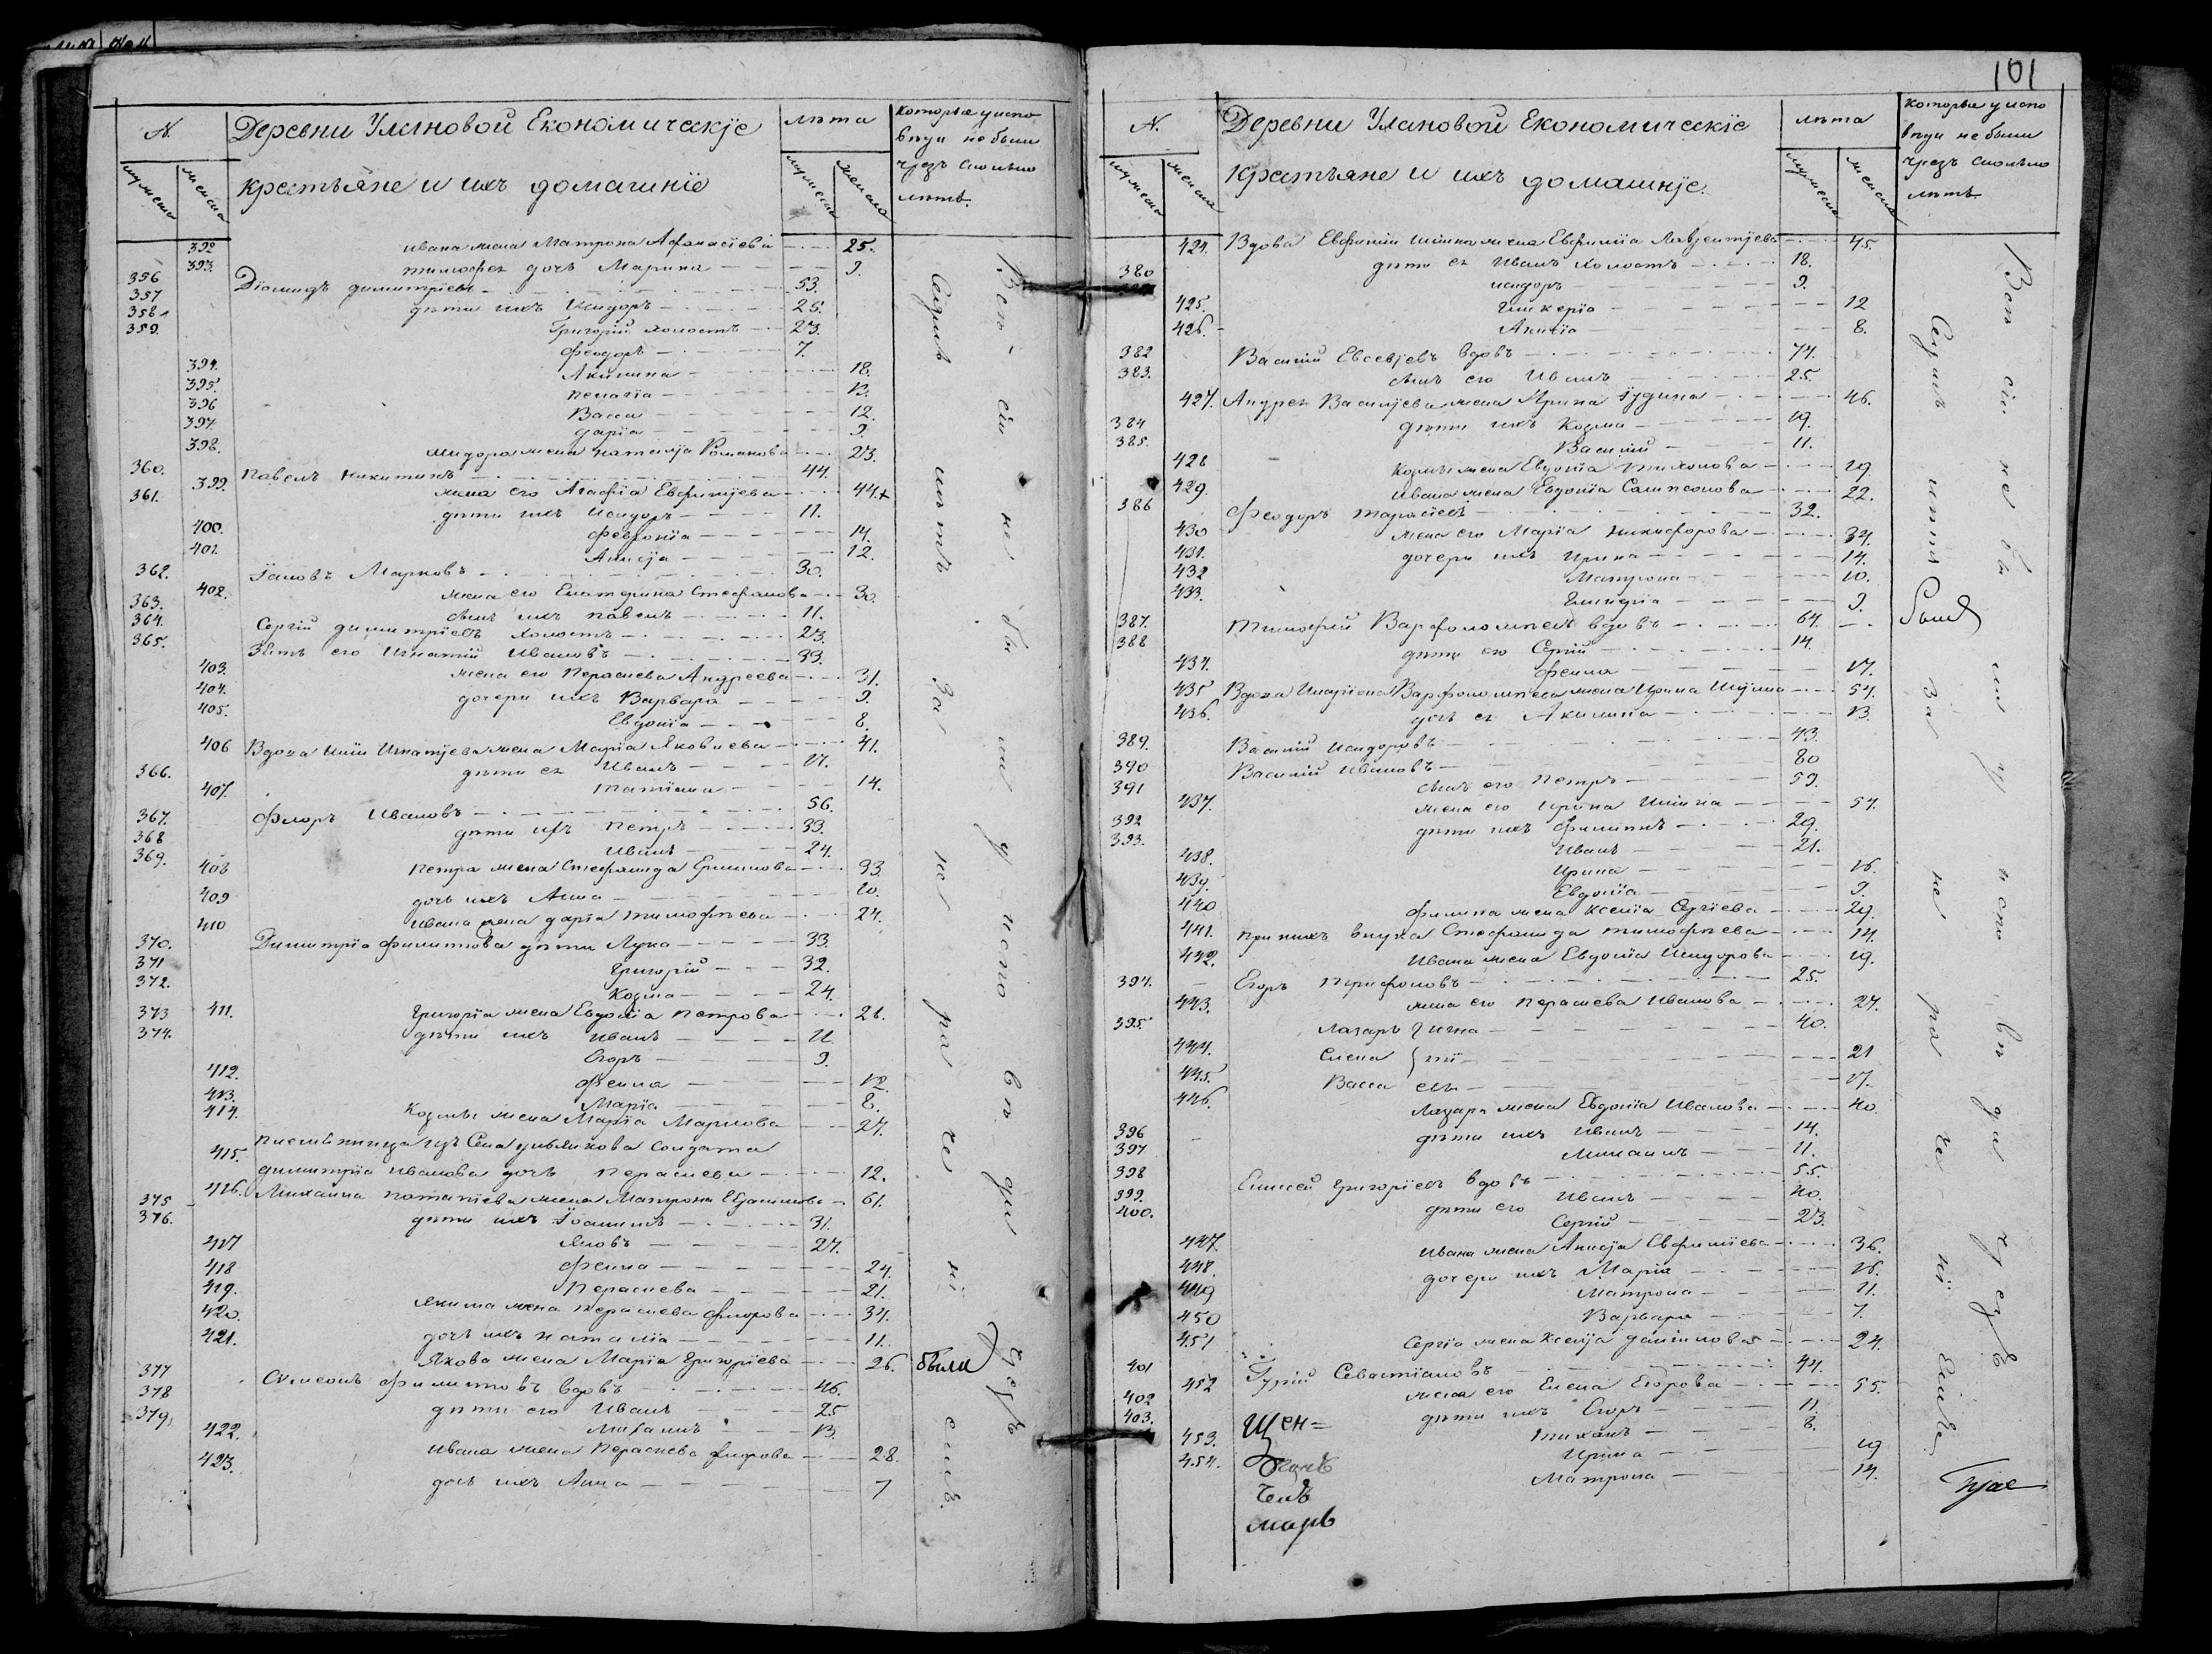 N. Деревни Улановой Економическїе лѣта которые у испо
вѣди не были
крестьяне и ихъ домашнїе чрезъ сколько
мужеска женска мужеска женска лѣтъ.
392 Ивана жена Матрона Афонасїева 25.
393. дочь Марина 9.
356 Дїомидъ димитрїевъ 53.
357 дѣти ихъ Исидоръ 25.
358 Григорїй холостъ 23.
359. феодоръ 7.
394. Акилина 18.
395. пелагїа 13.
396 Васса 12.
397. дарїа 9.
398. Исидора жена наталїа Романова 23.
360. павелъ никитинъ 44.
399. жена его Агафїа Евфимїева 44.
361. дѣти ихъ Исидоръ 11.
400. феврон̈їа 14.
401. Анисїа 12.
362. Їаковъ Марковъ 30.
402. жена его Екатерина Стефанова 30.
363. сынъ ихъ павелъ 11.
364. Сергїй димитрїевъ холостъ 23.
365. Зять его Игнатїй Ивановъ 33.
403. жена его Параскева Андреева 31.
404. дочери ихъ Варвара 9.
405. Евдокїа 8.
406 Вдова Игнатїева жена Марїа Яковлева 41.
366. дѣти ея Иванъ 17.
407. татїана 14.
367. флоръ Ивановъ 56.
368 дѣти ихъ петръ 33.
369. Иванъ 24.
408 петра жена Стефанида 33.
409 дочь ихъ Анна 10.
410 Ивана жена дарїа тимофѣева 24.
370. Димитрїа филиппова дѣти Лука 33.
371 Григорїй 32.
372. Козма 24.
411. Григорїа жена Евдокїа петрова 28.
373 дѣти ихъ Иванъ 11.
374. Егоръ 9.
412. фекла 12.
413. Марїа 8.
414. Козмы жена Марїа Маркова 27.
415. племянница изъ Села солдата
димитрїа Иванова дочь Параскева 12.
416. Михаила потапїева жена Матрона 61.
375 дѣти ихъ Їоакимъ 31.
376. Яковъ 27.
417 фекла 24.
418 Параскева 21.
419. Якима жена Параскева флорова 34.
420. дочь ихъ наталїа 11.
421. Якова жена Марїа Григорїева 26. были
377 Симеонъ филипповъ вдовъ 46.
378 дѣти его Иванъ 25
379. Михаилъ 13.
422. Ивана жена Параскева флорова 28.
423. дочь ихъ Анна 7
Всѣ сїи не бы ли у испо вѣ ди чрезъ
Седмь лѣтъ за не ра че нї емъ.
101
N. Деревни Улановой Економическїе лѣта которые у испо
вѣди не были
крестьяне и ихъ домашнїе. чрезъ сколько
мужеска женска мужеска женска лѣтъ.
424. Вдова Евфимїи жена Евфимїа Лаврентїева 45.
380 дѣти ея Иванъ холостъ 18.
исидоръ 9.
425. Гликерїа 12
426. Анисїа 8.
382 Василїй Евсевїевъ вдовъ 74.
383. сынъ его Иванъ 25.
427. Андрея Василїева жена Ирина Їудина 46.
384 дѣти ихъ Козма 19.
385. Василїй 11.
428 Козмы жена Евдокїа тихонова 19.
429. Ивана жена Евдокїа Сампсонова 22.
386 феодоръ тарасїевъ 32.
430 жена его Марїа никифорова 34.
431. дочери ихъ Ирина 14.
432 Матрона 10.
433. Гликерїа 9.
387. тимофей Варфоломѣевъ вдовъ 64.
388 дѣти его Сергїй 14.
434. фекла 17.
435 Вдова Иларїона Варфоломѣева жена Ирина 54.
436. дочь ея Акилина 13.
389. Василїй Исидоровъ 43.
390 Василїй Ивановъ 80
391 сынъ его петръ 59.
437. жена его Ирина 57.
392 дѣти ихъ филиппъ 29.
393. Иванъ 21.
438. Ирина 16.
439. Евдокїа 9.
440 филиппа жена ксенїа Сергїева 29.
441. при нихъ внука Стефанида тимофѣева 14.
442. Ивана жена Евдокїа Исидорова 19.
394. Егоръ 25.
443. жена его Параскева Иванова 27.
395. Лазарь Игна 40.
444. Елена тї 21
445. Васса евы 17.
446. Лазаря жена Евдокїа Иванова 40.
396 дѣти ихъ Иванъ 14.
397 Михаилъ 11.
398 Елисей Григорїевъ вдовъ 55.
399. дѣти его Иванъ 40.
400. Сергїй 23.
447. Ивана жена Анисїа Евфимїева 36.
448. дочери ихъ Марїа 16.
449 Матрона 11.
450 Варвара 7.
451 Сергїа жена Ксенїа данїилова 24.
401 Гурїй Севастїановъ 44.
452 жена его Елена Егорова 55.
402 дѣти ихъ Егоръ 11.
403. тихонъ 8.
453. Ирина 19
454. Матрона 14.
Всѣ сїи не бы ли у испо вѣ ди чрезъ
Седмь лѣтъ за не ра че нї емъ